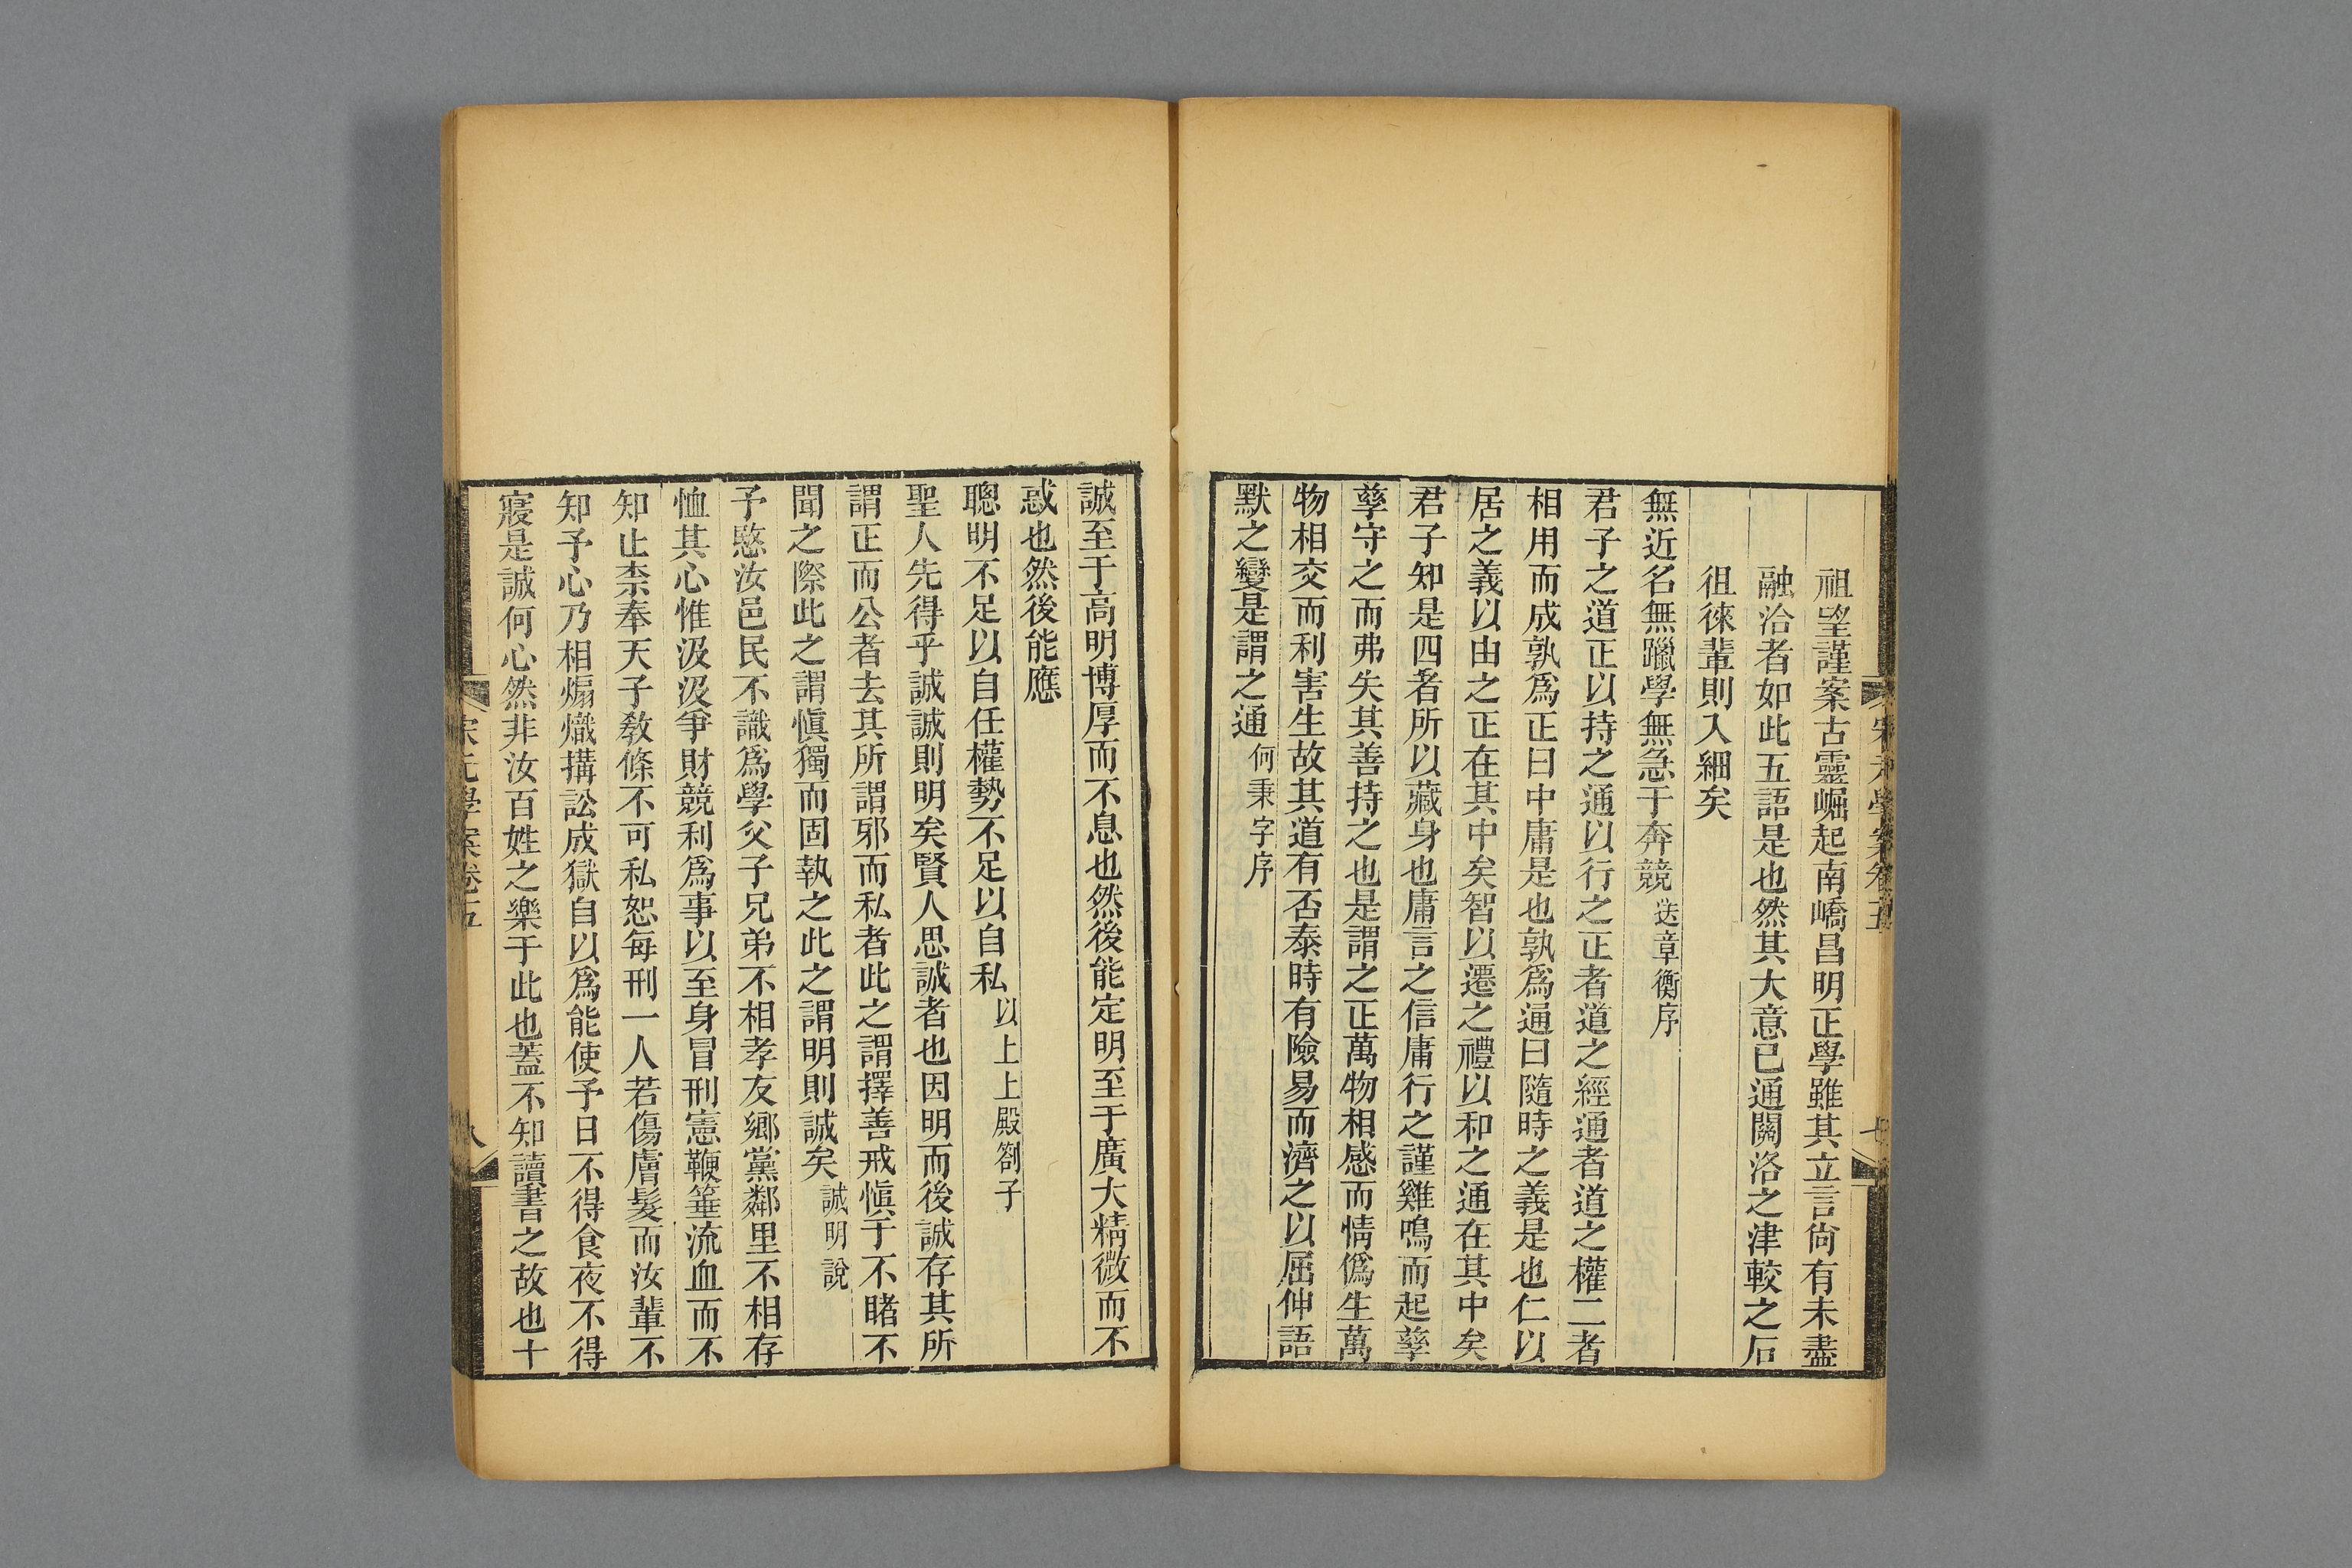 宋元學案卷五
七
祖望謹案古靈崛起南嶠昌明正學雖其立言尙有未盡
融洽者如此五語是也然其大意已通關洛之津較之石
徂徠輩則入細矣
無近名無躐學無急于奔競送章衡序
君子之道正以持之通以行之正者道之經通者道之權二者
相用而成孰爲正曰中庸是也孰爲通曰隨時之義是也仁以
居之義以由之正在其中矣智以遷之禮以和之通在其中矣
君子知是四者所以藏身也庸言之信庸行之謹雞鳴而起孳
孳守之而弗失其善持之也是謂之正萬物相感而情僞生萬
物相交而利害生故其道有否泰時有險易而濟之以屈伸語
默之變是謂之通何秉字序
誠至于高明博厚而不息也然後能定明至于廣大精微而不
惑也然後能應
聰明不足以自任權勢不足以自私以上上殿劄子
聖人先得乎誠誠則明矣賢人思誠者也因明而後誠存其所
謂正而公者去其所謂邪而私者此之謂擇善戒愼于不睹不
聞之際此之謂愼獨而固執之此之謂明則誠矣誠明說
予愍汝邑民不識爲學父子兄弟不相孝友鄉黨鄰里不相存
恤其心惟汲汲爭財競利爲事以至身冒刑憲鞭箠流血而不
知止柰奉天子敎條不可私恕每刑一人若傷膚髮而汝輩不
知予心乃相煽熾搆訟成獄自以爲能使予日不得食夜不得
寢是誠何心然非汝百姓之樂于此也蓋不知讀書之故也十
宋元學案卷五
八